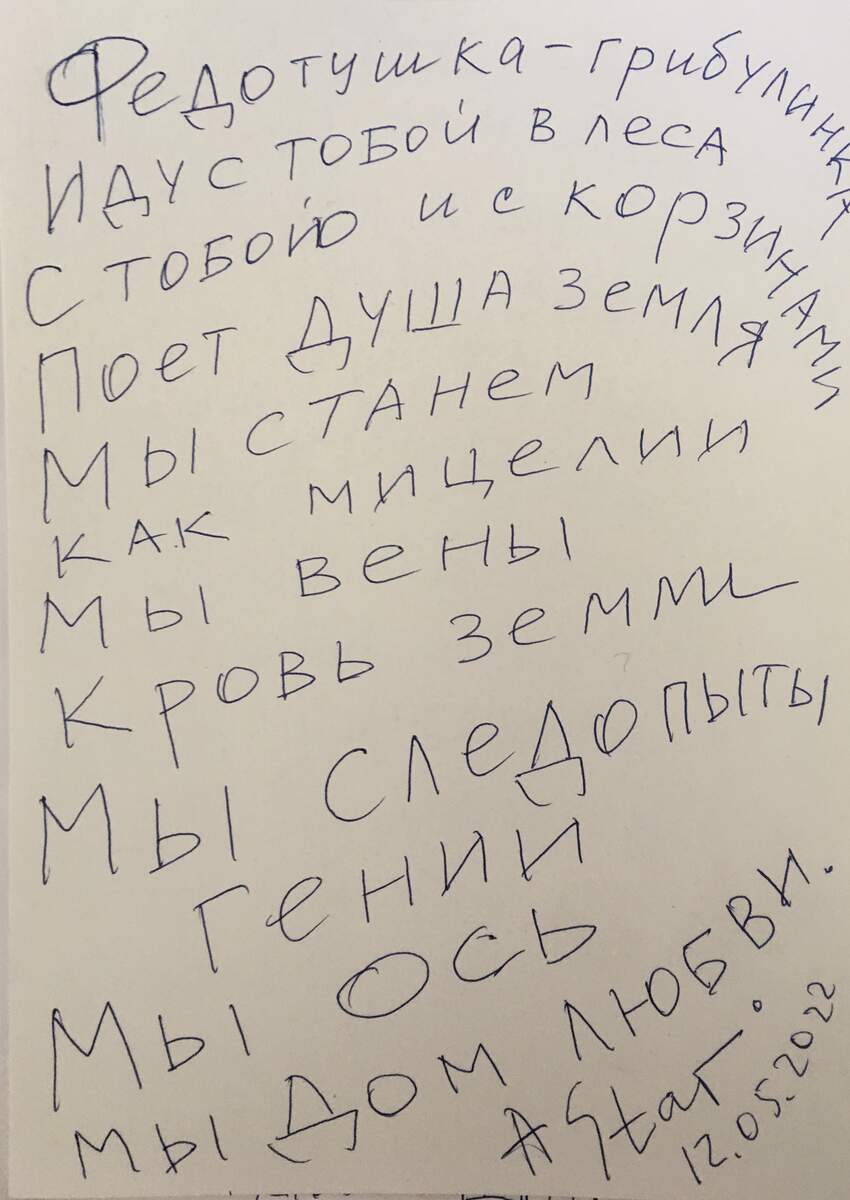 Федотушка-грибулинка
ИДУ С ТОБОЙ В ЛеСА
С ТОБОЙ и с корзинами
Поет ДУША Земля
Мы станем
как мицелии
Мы вены
Кровь земли
Мы следопыты
гении
Мы ось
мы Дом любви.
A Star.
12.05.2022